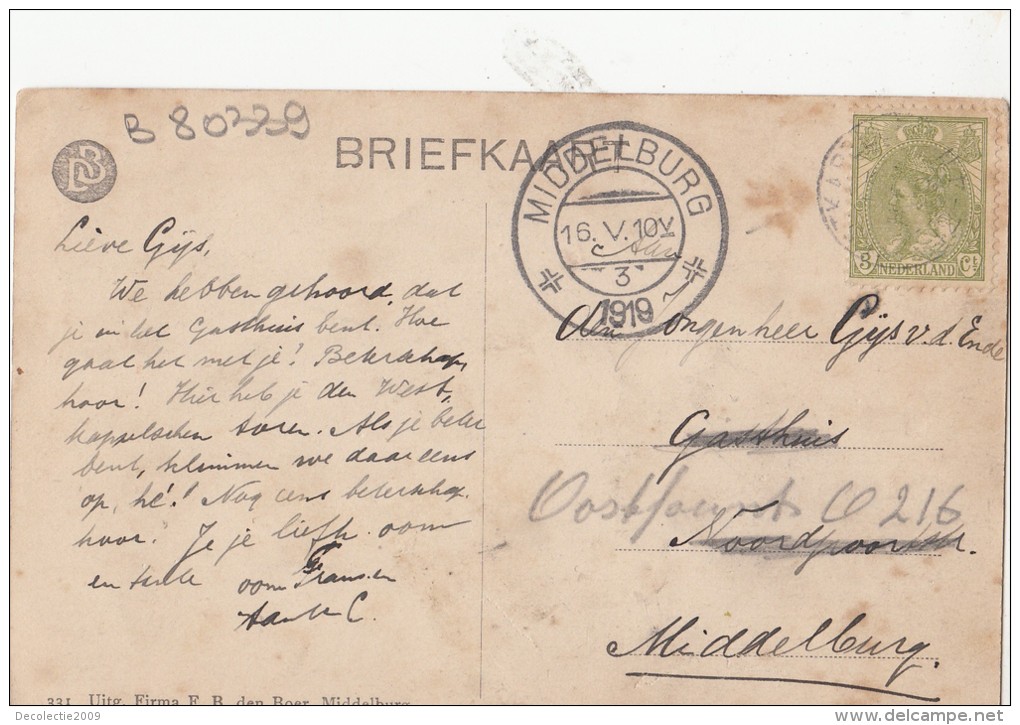 B 80339
BRIEFKAART
MIDDELBURG
16. V. 10V
3
1919
3 NEDERLAND Ct
Lieve Gijs,
We hebben gehoord, dat
je in het Gasthuis bent. Hoe
gaat het met je? Beterschap,
hoor! Hier heb je den West-
kappelschen toren. Als je beter
bent, klimmen we daar eens
op, hè! Nog eens beterschap
hoor. Je je liefh. oom
en tante
oom Frans en
tante C.
Aan
den Jongenheer Gijs v.d. Ende
Gasthuis
O 216
Noordpoortstr.
Middelburg.
331 Uitg. Firma F. B. den Boer, Middelburg
Decolectie2009
www.delcampe.net